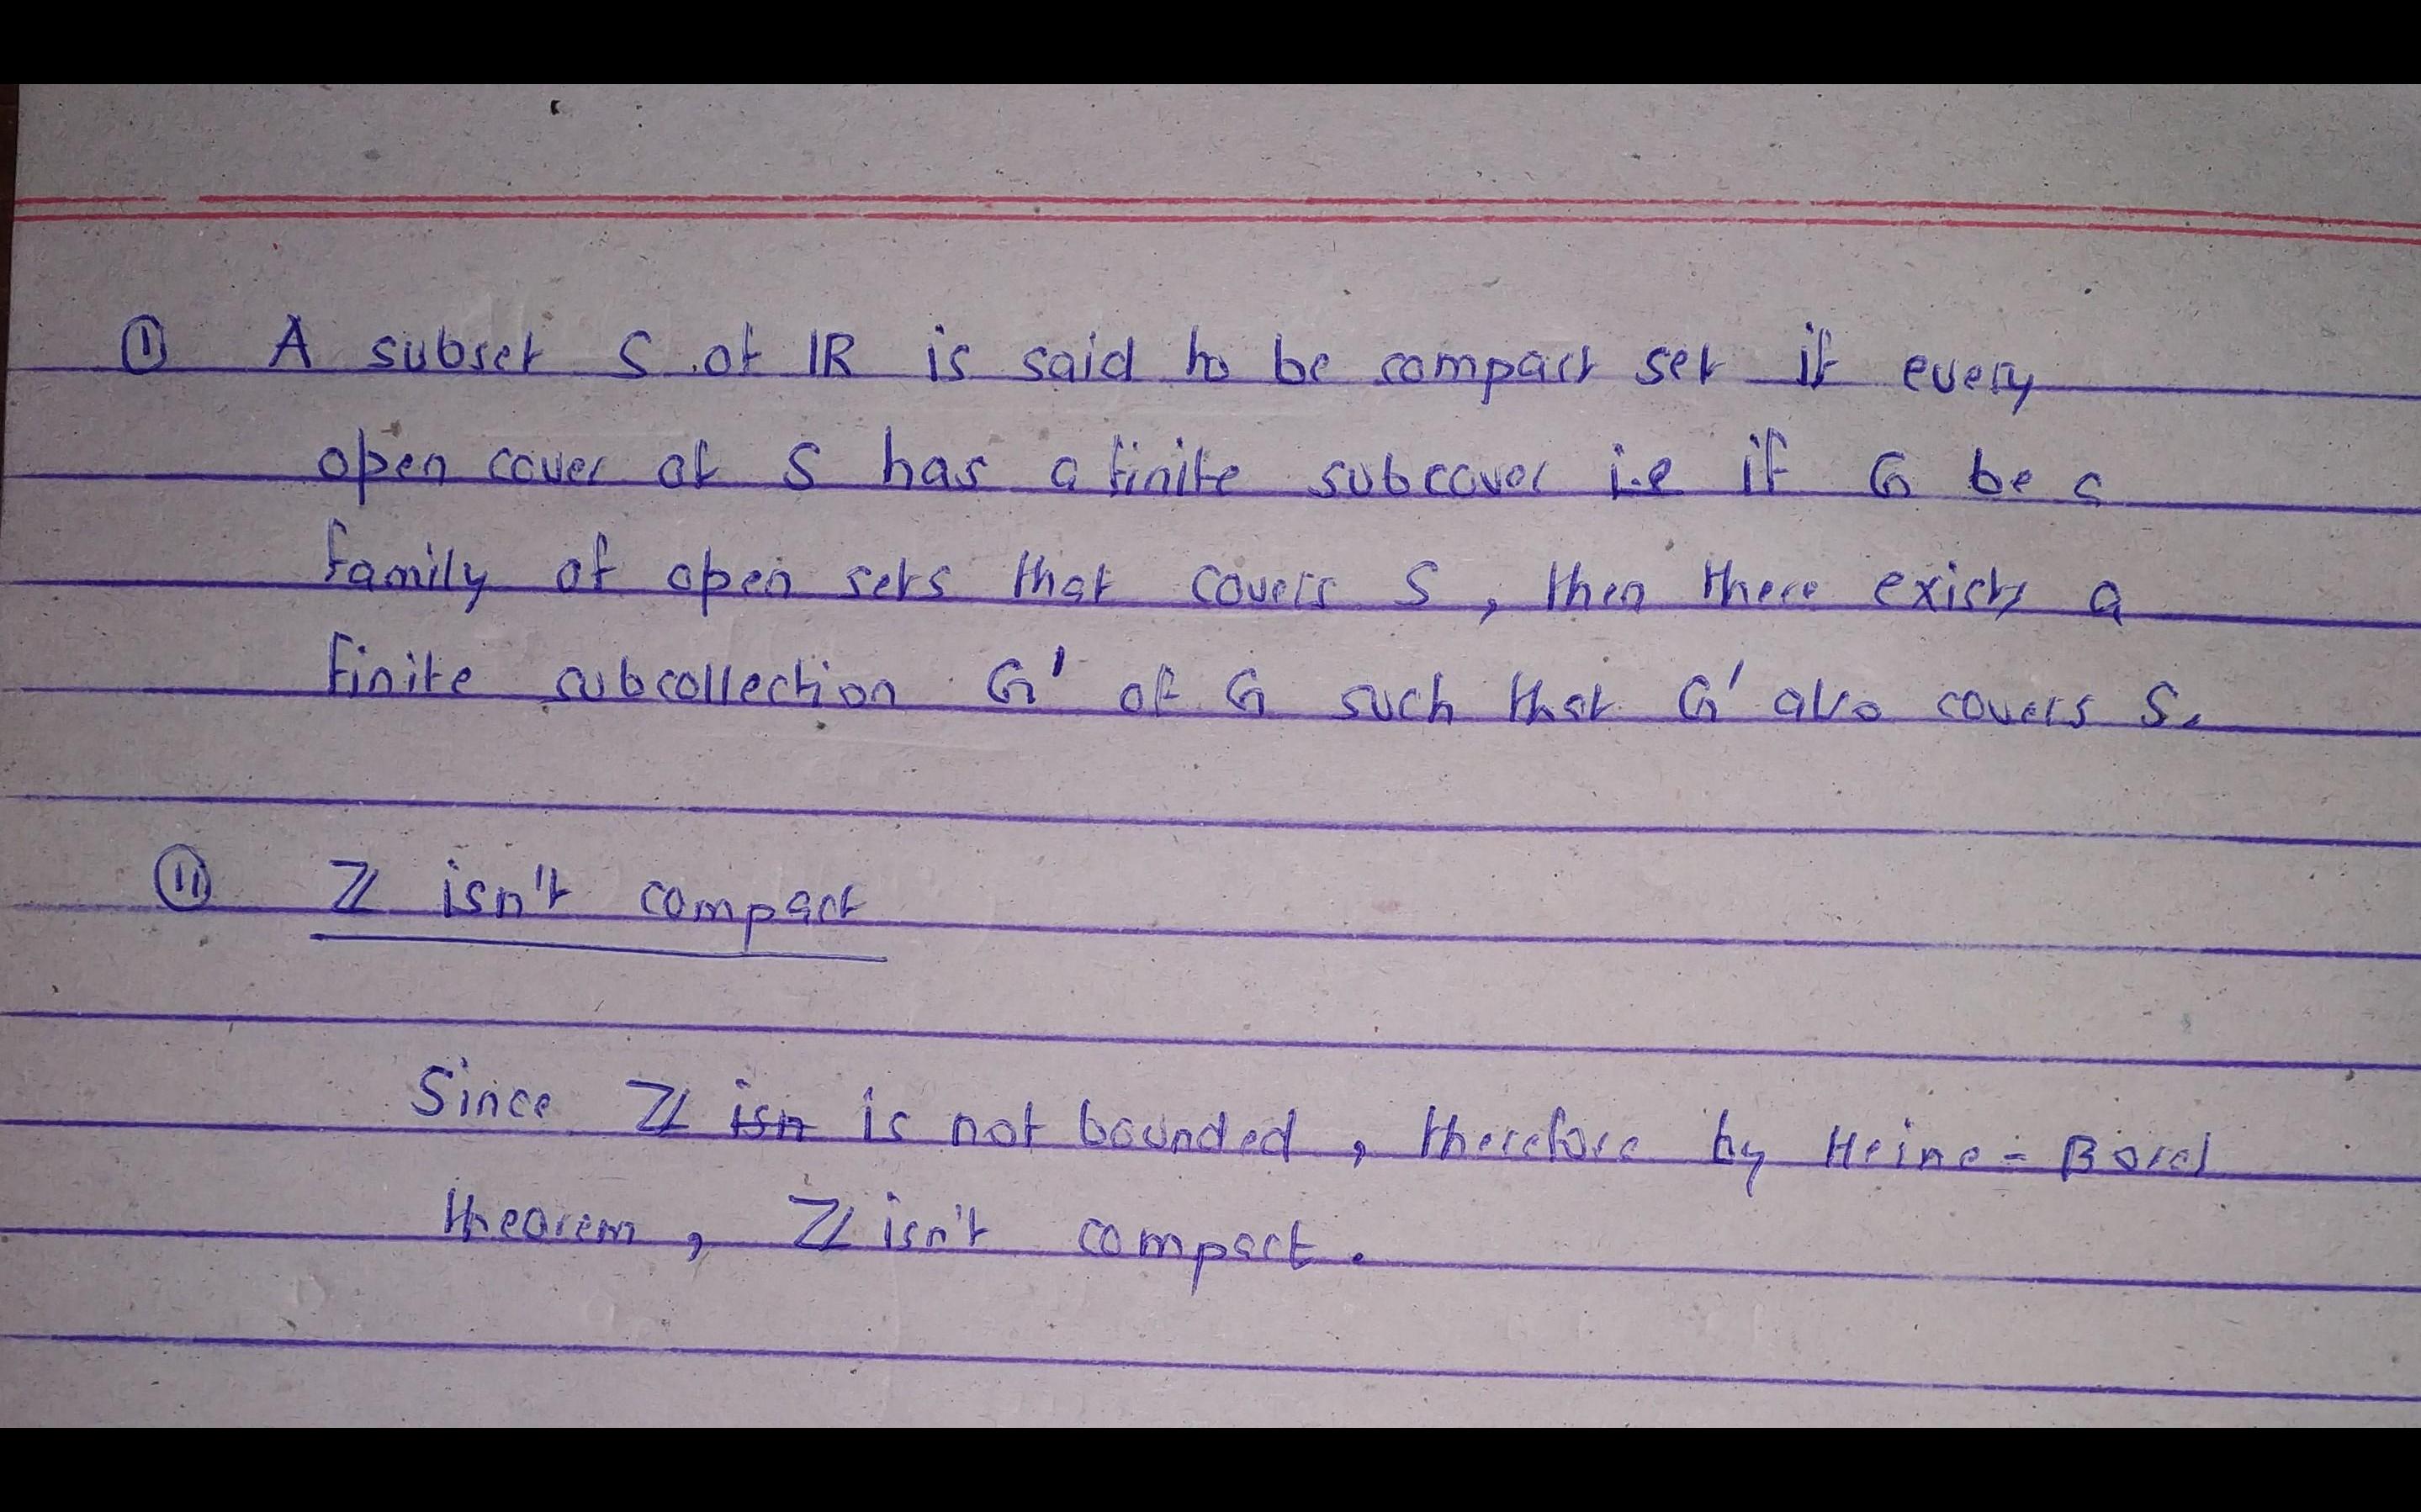 ① A subset S of ℝ is said to be compact set if every
open cover of S has a finite subcover i.e if G be a
family of open sets that covers S, then there exists a
finite subcollection G' of G such that G' also covers S.
⑪ ℤ isn't compact
Since ℤ isn is not bounded, therefore by Heine-Borel
theorem, ℤ isn't compact.